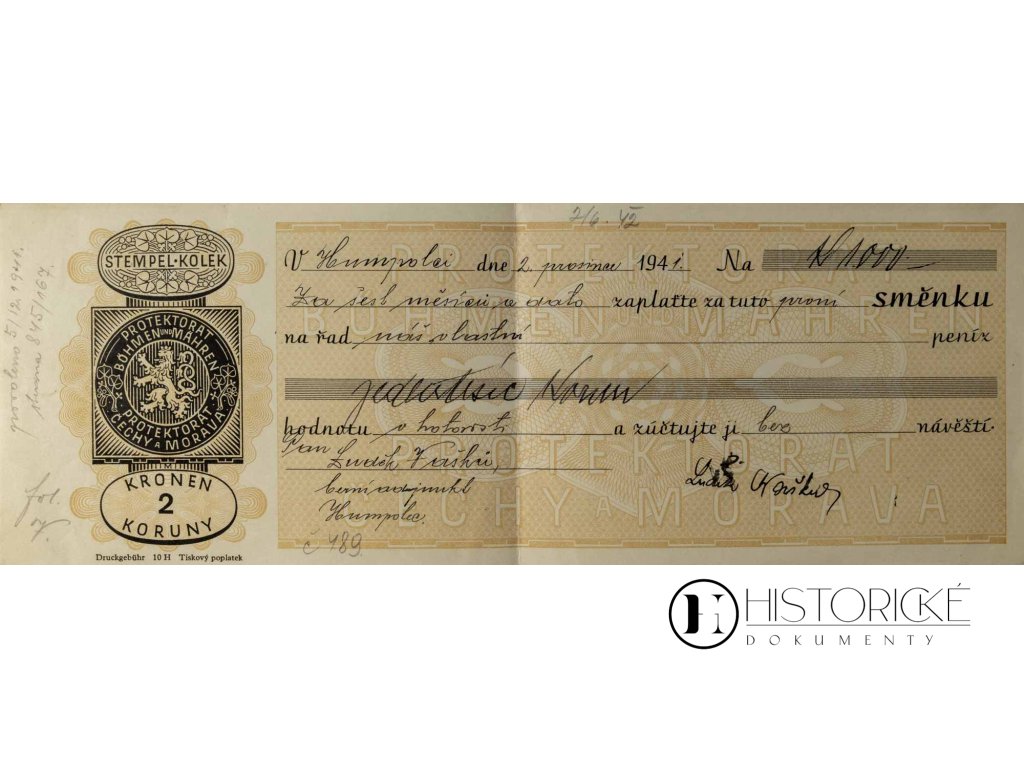 2/6. 42
STEMPEL·KOLEK
PROTEKTORAT
BÖHMEN UND MÄHREN
PROTEKTORÁT
ČECHY A MORAVA
KRONEN
2
KORUNY
Druckgebühr 10 H Tiskový poplatek
PROTEKTORAT
BÖHMEN MÄHREN
PROTEKTORÁT
ČECHY MORAVA
V Humpolci dne 2. prosince 1941. Na K 1000.-
Za šest měsíců a dato zaplaťte za tuto první směnku
na řad náš vlastní peníz
jedentisíc Korun
hodnotu v hotovosti a zúčtujte ji bez návěští.
Pan
Luděk Vašků,
berní adjunkt
Humpolec.
č 489
povoleno 5/12 1941.
fol.
HISTORICKÉ
DOKUMENTY